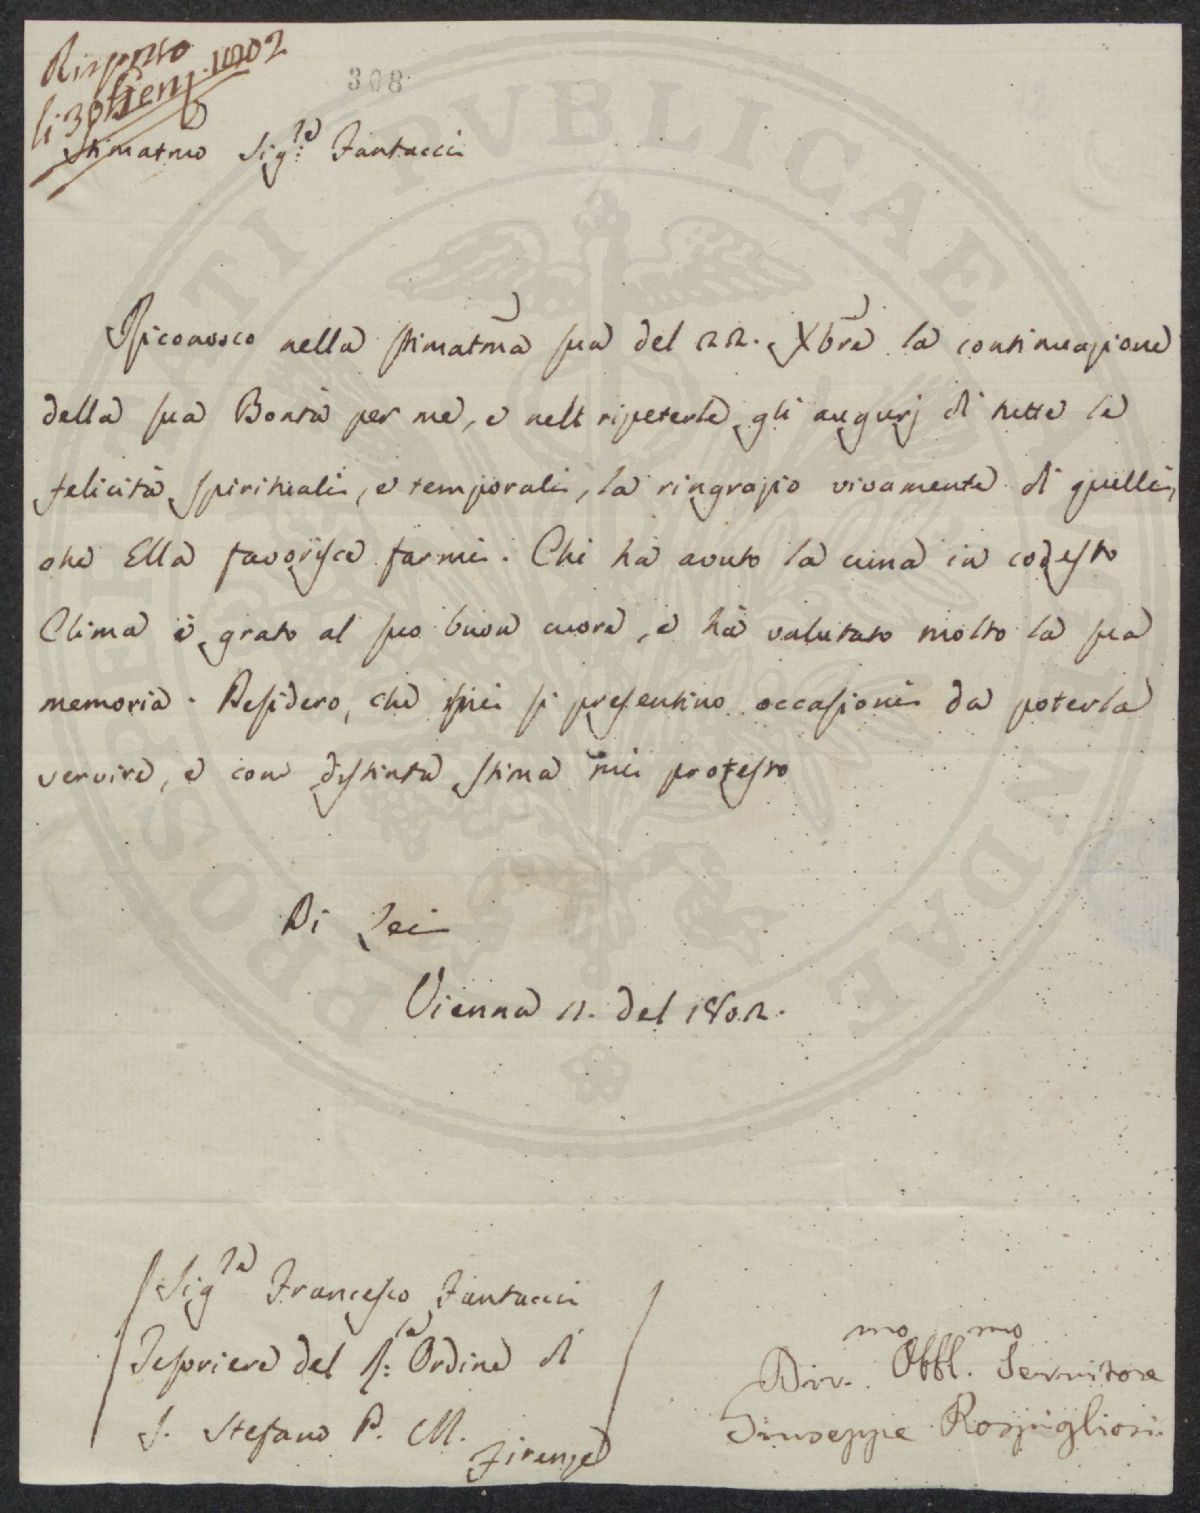 Risposto
li 30 Gen. 1802
308
Stimatmo Sig.re Fantacci
Riconosco nella stimatma sua del 22. Xbre la continuazione
della sua Bontà per me, e nell ripeterle gli augurj di tutte le
felicità spirituali, e temporali, la ringrazio vivamente di quelli,
che Ella favorisce farmi. Chi ha avuto la cuna in codesto
Clima è grato al suo buon cuore, e ha valutato molto la sua
memoria. Desidero, che mi si presentino occasioni da poterla
servire, e con distinta stima mi protesto
Di Lei
Vienna 11. del 1802.
Sig.re Francesco Fantacci
Tesoriere del R.le Ordine di
S. Stefano P. M.
Firenze
Div.mo Obbl.mo Servitore
Giuseppe Rospigliosi
PROSPERITATI PVBLICAE